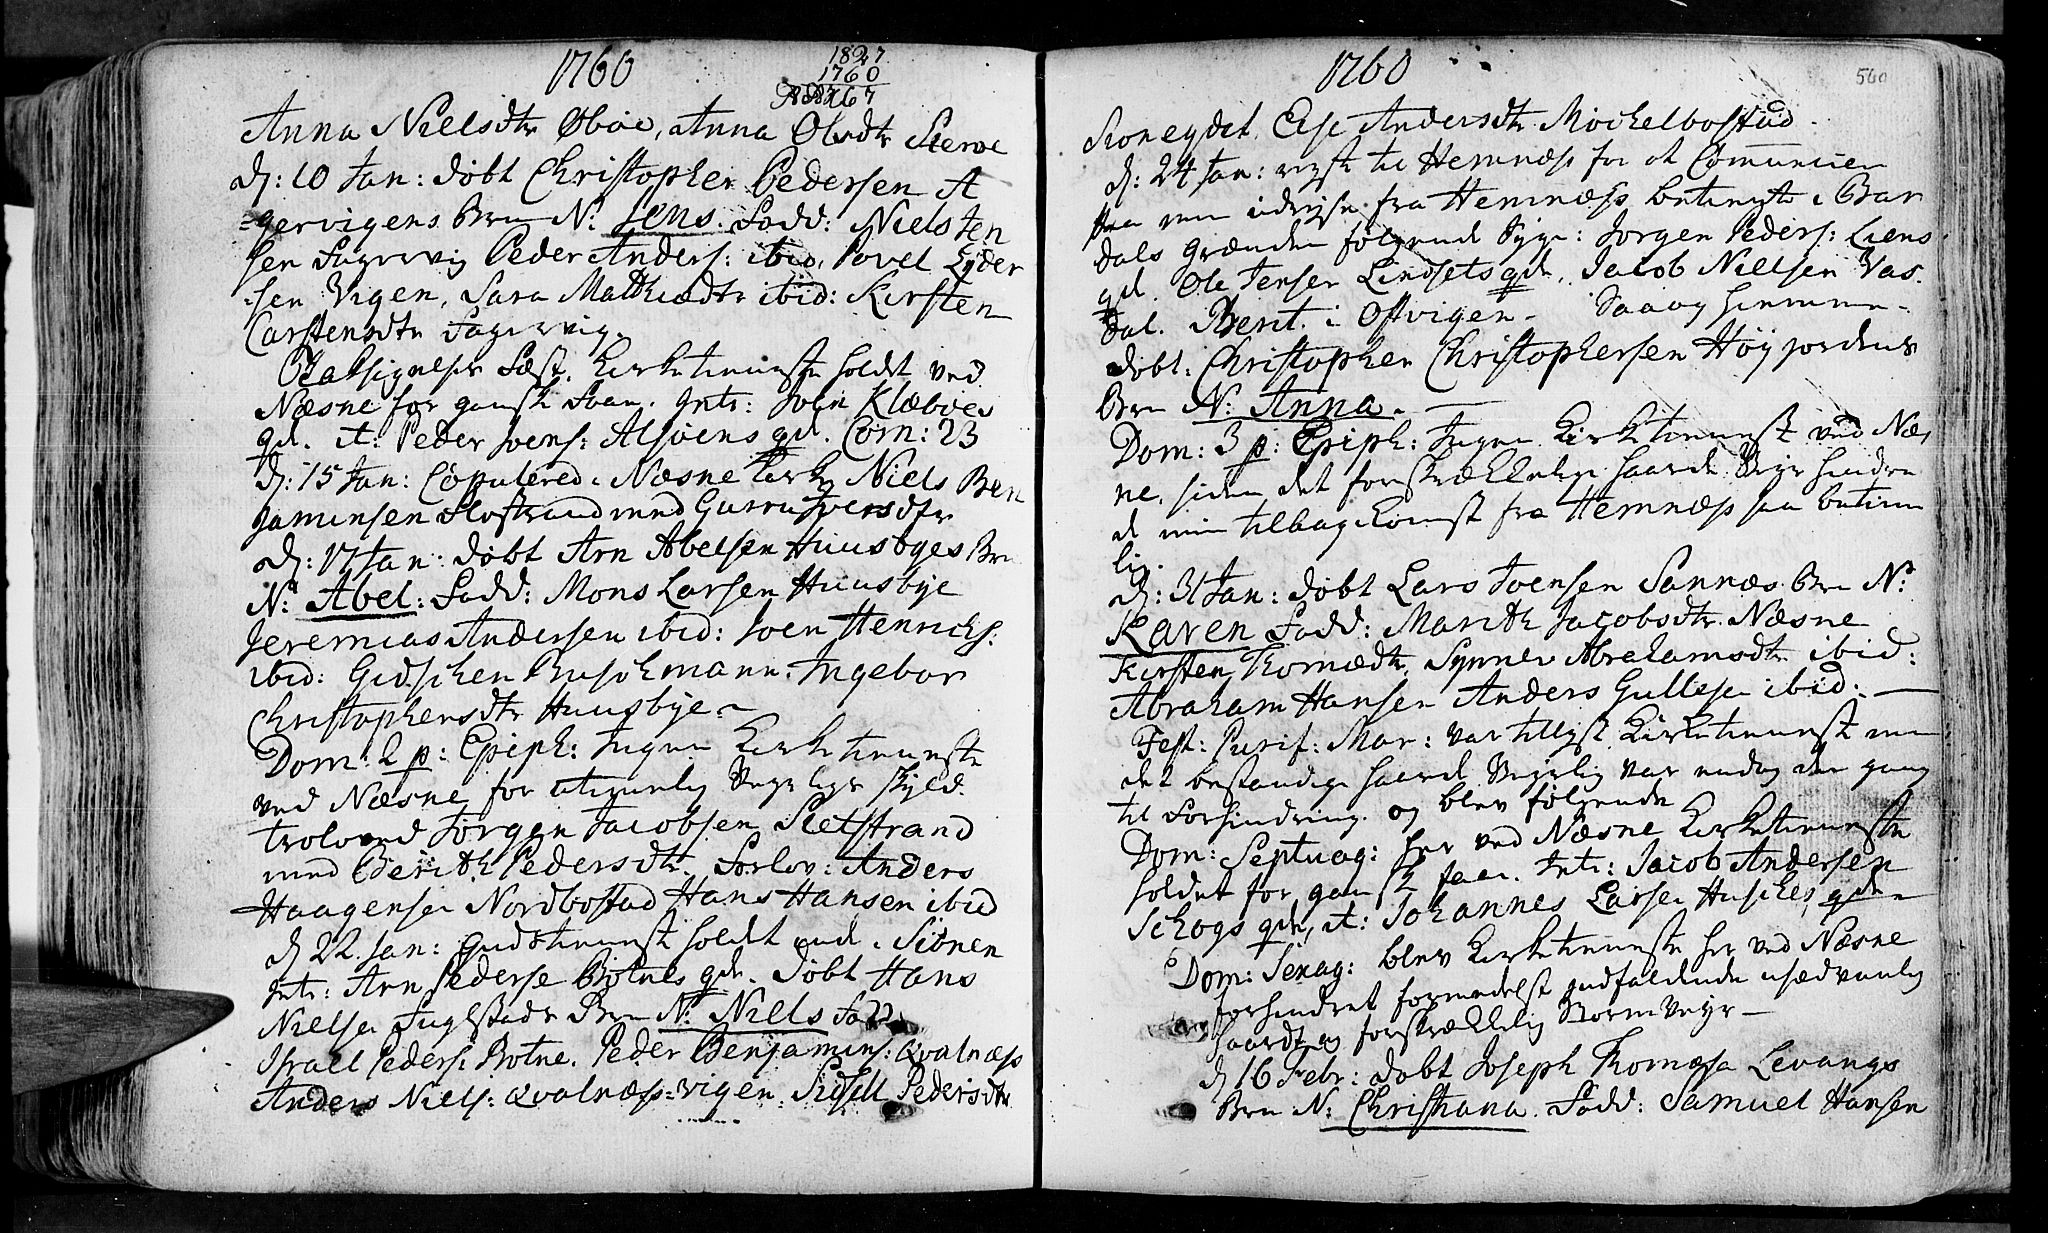 1760
1827
1760
67
Anna Nielsdtr Øbøe, Anna Olsdtr Sierve
D: 10 Jan: døbt Christopher Pedersen A
=gervigens Brn N: Jens. Fadd: Niels Jen
sen Fagervig Peder Anders: ibid, Povel Eyder
=sen Vigen, Sara Matthiædtr ibid: Kirsten
Carstensdtr Fagervig.
Taksigelses Fæst. Kirketienneste holdt ved
Næsne for gansk Saan. Intr: Joen Klæbøes
qd. it: Peder Joens: Alsøens qd. Com: 23
D: 15 Jan: Copulered i Næsne Kirke Niels Ben
jaminsen Slostrand med Gurru Iversdtr
D: 17 Jan: døbt Arn Abelsen Huusbyes Brn
N: Abel: Fadd: Mons Larsen Huusbye
Jeremias Andersen ibid: Joen Henrichs:
ibid: Gidschen Buschmann. Ingebor
Christophersdtr Huusbye.
Dom: 2 p: Epiph: Ingen Kirketienneste
ved Næsne for utienlig Veyrligs skyld.
troloved Jørgen Jacobsen Sletstrand
med Berith Pedersdtr. Forlov: Anders
Haagensen Nordbostad Hans Hansen ibid
D 22. Jan: Gudstieneste holdt ved i Siønen
Intr: Arn Pederse Botnes qd. døbt Hans
Nielsen Fuglstads Brn N: Niels Fadd
Israel Peders: Botne. Peder Benjamins: Qvalnæss
Anders Niels: Qvalnæss=vigen. Sidsell Pedersdtr
1760
560
Kone gdet Else Andersdtr Mickelbostad
D: 24 Jan: reyste til Hemnæss for at Communicere
Paa min udreyse fra Hemnæss betienyte i Bar
dals Grænden følgende Syge: Jørgen Peders: Liens
qd. Ole Jensen Lindsets qd. Jacob Nielsen Vas
dal. Berit i Østvigen. Saaog hiemme
døbt: Christopher Christophersen Høyjordens
Brn N: Anna.
Dom: 3 p: Epiph: Ingen Kirketienest ved Næs
ne, siden det forskrækkelige haarde Veyr hindre
de min tilbagekomst fra Hemnæss saa betime
lig.
D: 31 Jan: døbt Lars Joensen Sannæs Brn N:
Karen Fadd: Marith Jacobsdtr Næsne
Kirsten Thomædtr, Synnev Abrahamsdtr ibid:
Abraham Hansen Anders Gullesen ibid:
Fest: Purif: Mar: var tillyst Kirketienest men
det bestandige haarde Veyrlig var endog den gang
til Forhindring. og blev følgende
Dom: Septuag: her ved Næsne Kirketienneste
holdet for gansk faae. Intr: Jacob Andersen
Schogs qd, it: Johannes Larsen Husbyes qde
Dom: Sexag: blev Kirketienneste her ved Næsne
forhindret formedelst indfaldende usædvanlig
haardt og forskrækkelig Stormveyr
D 16 Febr: døbt Joseph Thomesen Levangs
Brn N: Christiana. Fadd: Samuel Hansen